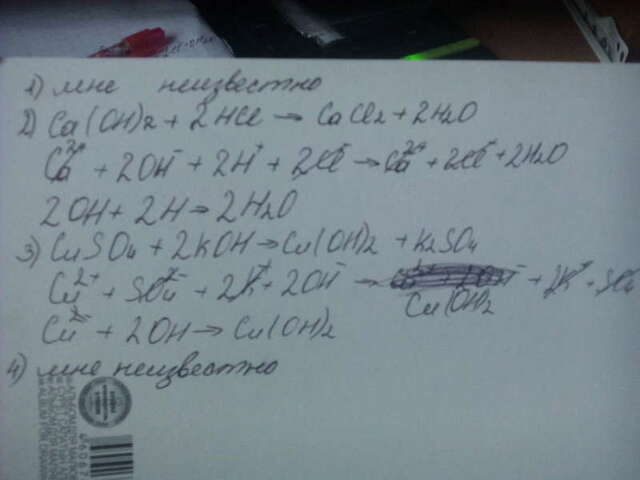 1) мне неизвестно
2) Ca(OH)2 + 2HCl → CaCl2 + 2H2O
Ca2+ + 2OH- + 2H+ + 2Cl- → Ca2+ + 2Cl- + 2H2O
2OH + 2H → 2H2O
3) CuSO4 + 2KOH → Cu(OH)2 + K2SO4
Cu2+ + SO42- + 2K+ + 2OH- → Cu(OH)2 + 2K+ + SO4
Cu2+ + 2OH → Cu(OH)2
4) мне неизвестно